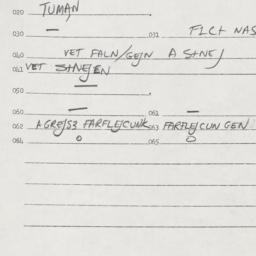 020 TUMAN
030 — 031 FLCI NAS
040 VET FALN/GEJN A S+NEJ
041 VET S+NEJEN
050 —
060 — 061 —
062 AGREJSZ FARFLEJCUNK 063 FARFLEJCUN GEN
064 0 065 0